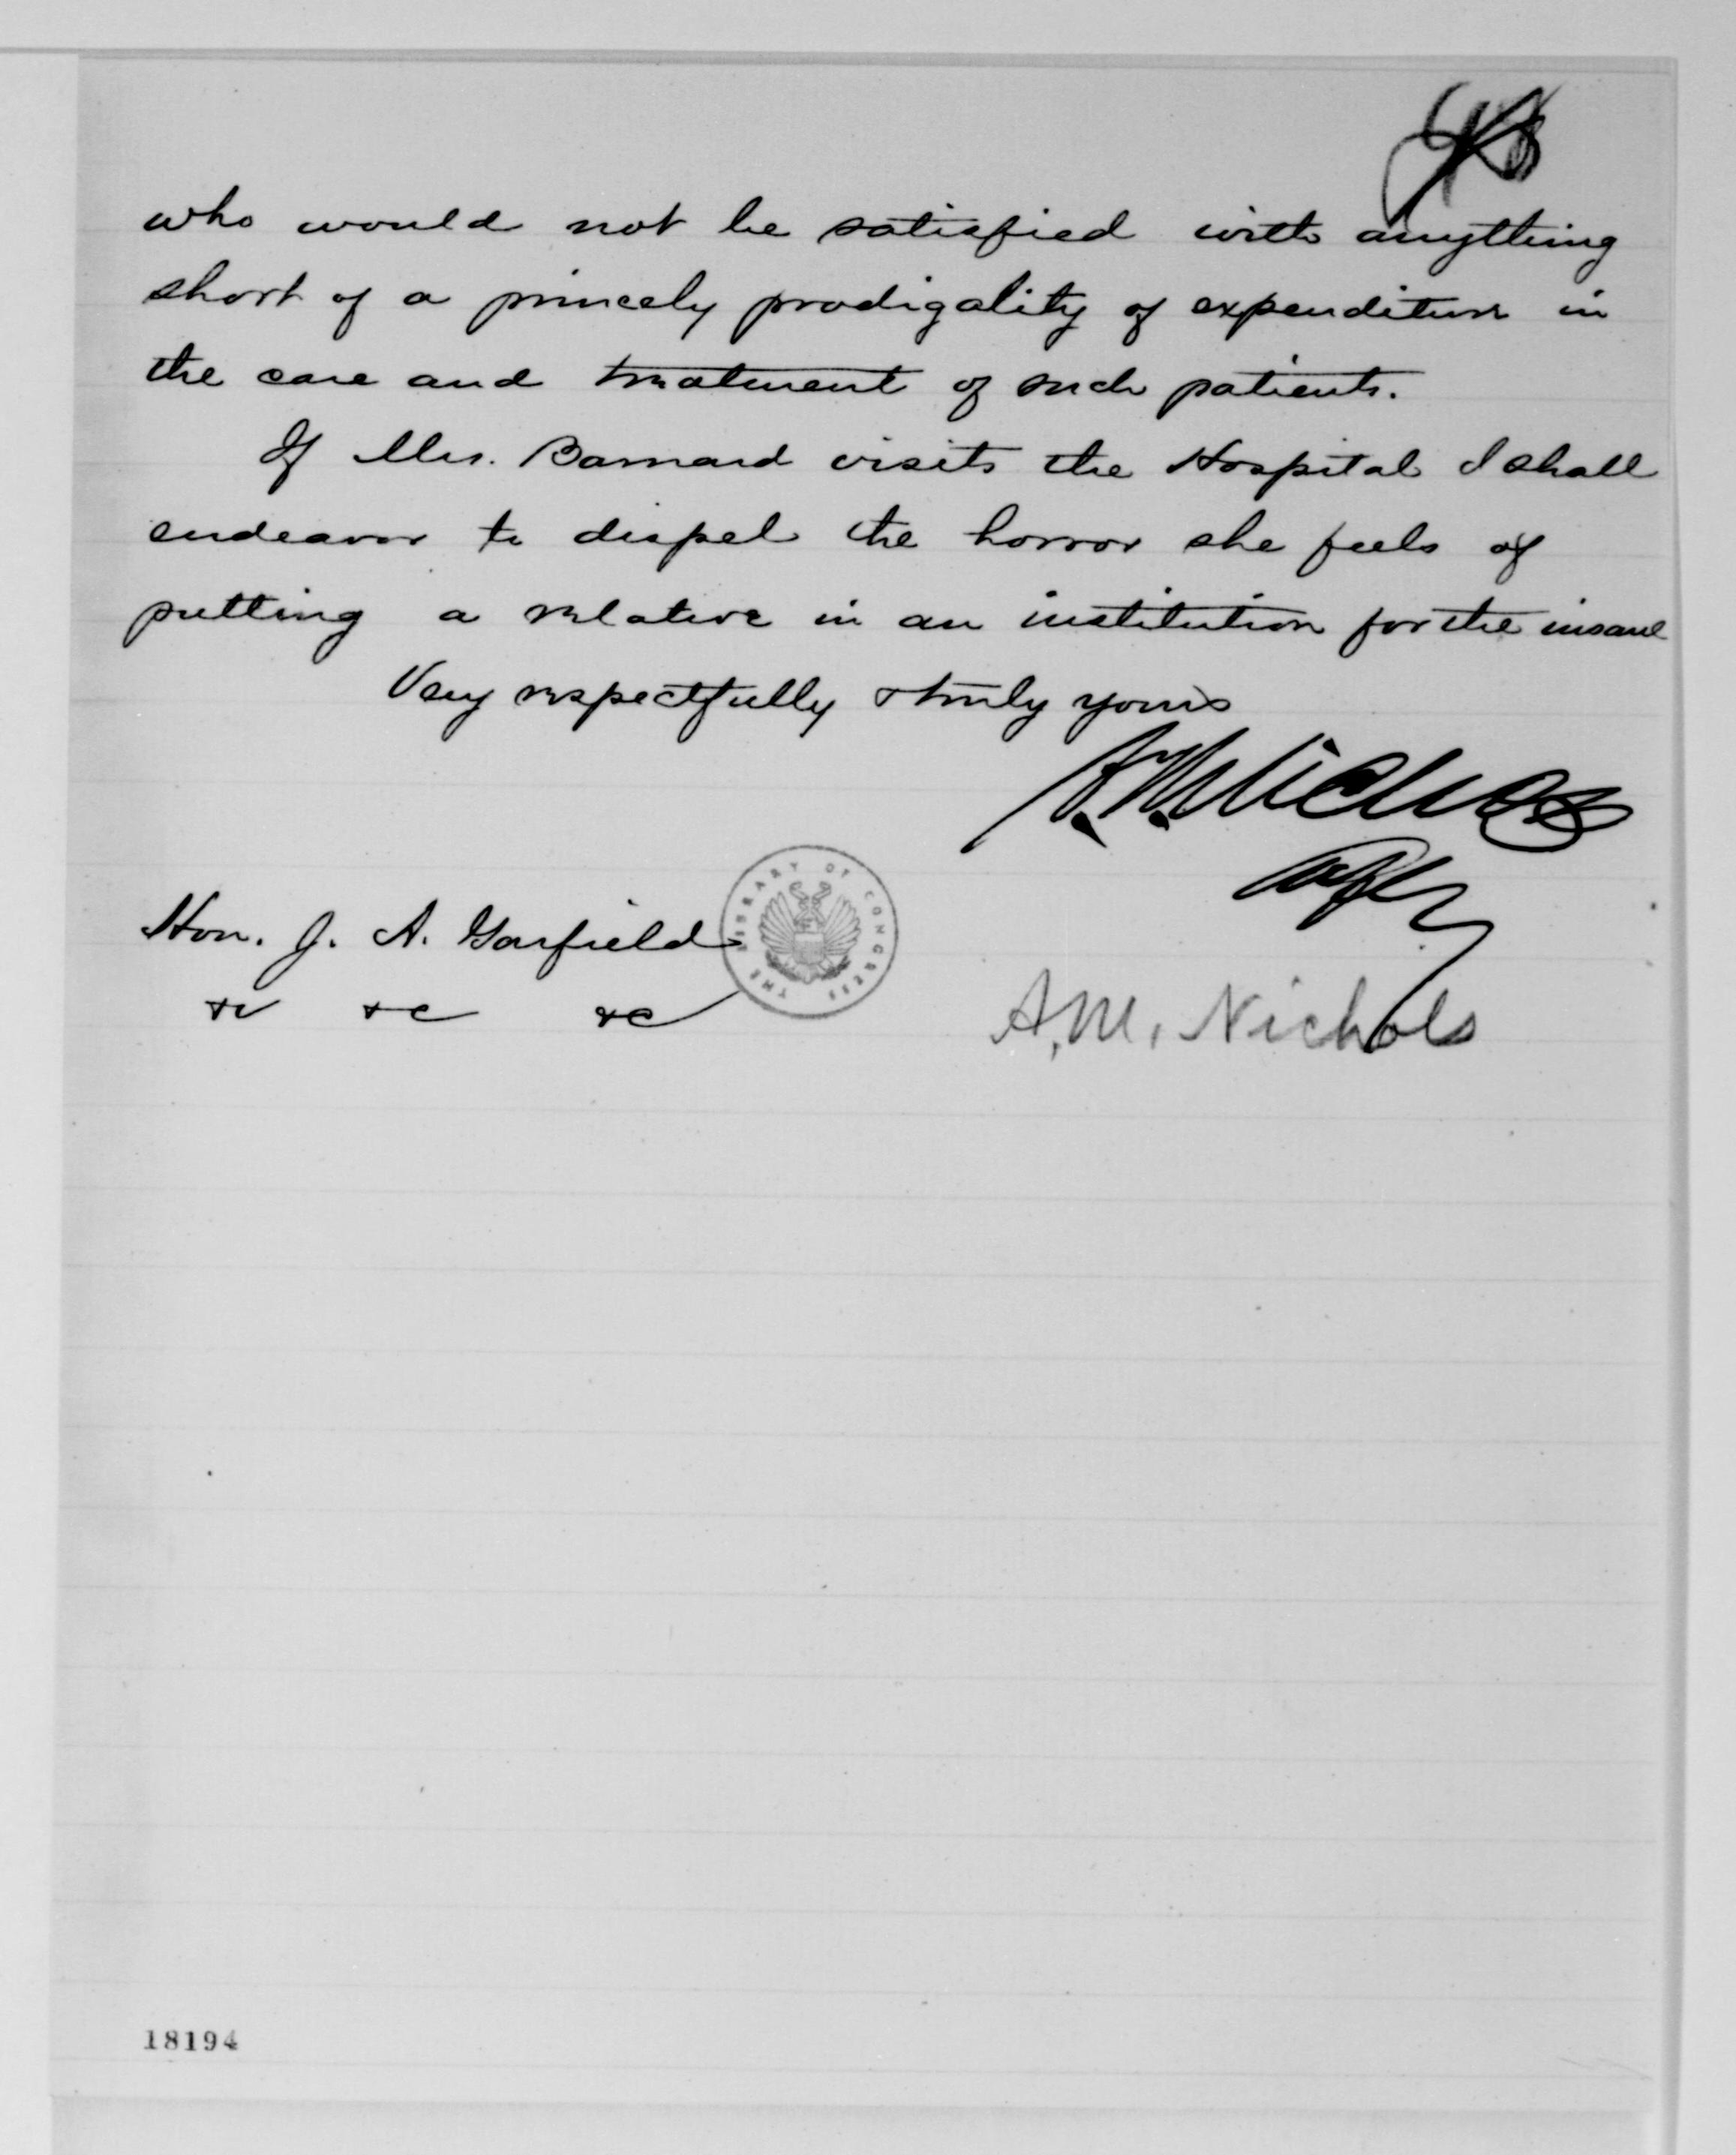 who would not be satisfied with anything
short of a princely prodigality of expenditure in
the care and treatment of such patients.
If Mrs. Barnard visits the Hospital I shall
endeavor to dispel the horror she feels of
putting a relative in an institution for the insane
Very respectfully & truly yours
Nichols
Hon. J. A. Garfield
&c &c &c
THE LIBRARY OF CONGRESS
A. M. Nichols
18194